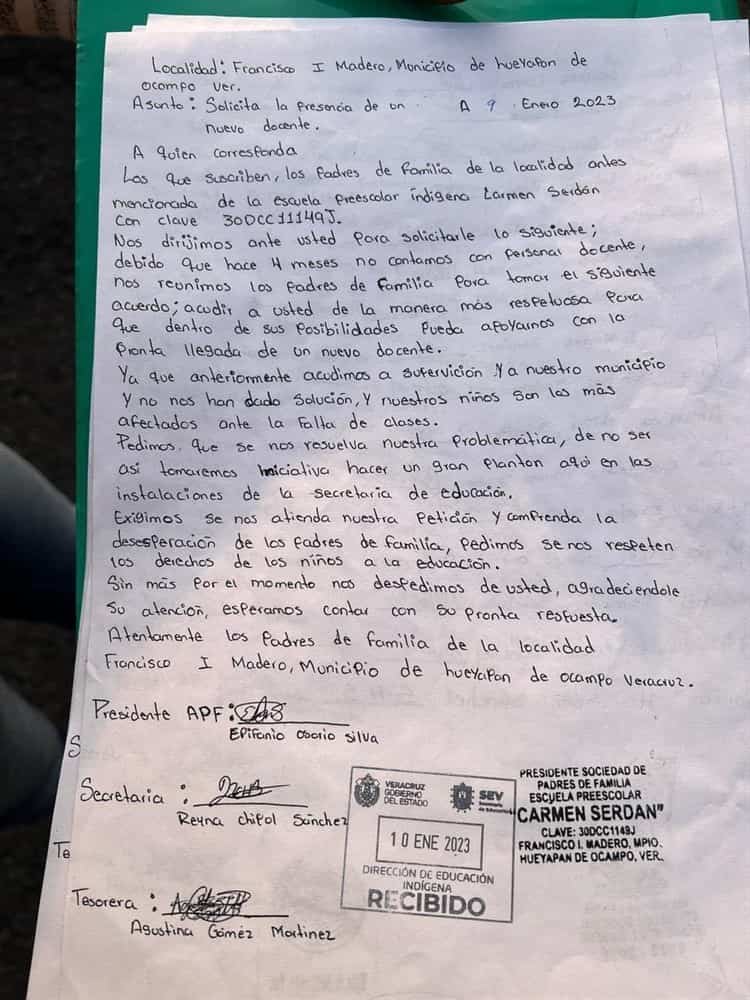 Localidad: Francisco I Madero, Municipio de hueyapan de
ocampo ver.
Asunto: Solicita la presencia de un A 9 Enero 2023
nuevo docente.
A quien corresponda
Los que suscriben, los padres de familia de la localidad antes
mencionada de la escuela preescolar indigena Carmen Serdán
Con clave 30DCC11149J.
Nos dirijimos ante usted para solicitarle lo siguiente;
debido que hace 4 meses no contamos con personal docente,
nos reunimos los padres de familia para tomar el siguiente
acuerdo; acudir a usted de la manera más respetuosa para
que dentro de sus posibilidades pueda apoyarnos con la
pronta llegada de un nuevo docente.
Ya que anteriormente acudimos a supervición y a nuestro municipio
y no nos han dado solución, y nuestros niños son los más
afectados ante la falta de clases.
Pedimos que se nos resuelva nuestra problemática, de no ser
así tomaremos iniciativa hacer un gran planton aqui en las
instalaciones de la secretaria de educación.
Exigimos se nos atienda nuestra petición y comprenda la
desesperación de los padres de familia, pedimos se nos respeten
los derechos de los niños a la educación.
Sin más por el momento nos despedimos de usted, agradeciendole
su atención, esperamos contar con su pronta respuesta.
Atentamente los padres de familia de la localidad
Francisco I Madero, Municipio de hueyapan de ocampo Veracruz.
Presidente APF:
Epifanio osorio silva
Secretaria:
Reyna chipol Sánchez
Tesorera:
Agustina Goméz Martinez
VERACRUZ
GOBIERNO
DEL ESTADO
SEV
Secretaría
de Educación
10 ENE 2023
DIRECCIÓN DE EDUCACIÓN
INDÍGENA
RECIBIDO
PRESIDENTE SOCIEDAD DE
PADRES DE FAMILIA
ESCUELA PREESCOLAR
CARMEN SERDAN"
CLAVE: 30DCC1149J
FRANCISCO I. MADERO, MPIO.
HUEYAPAN DE OCAMPO, VER.